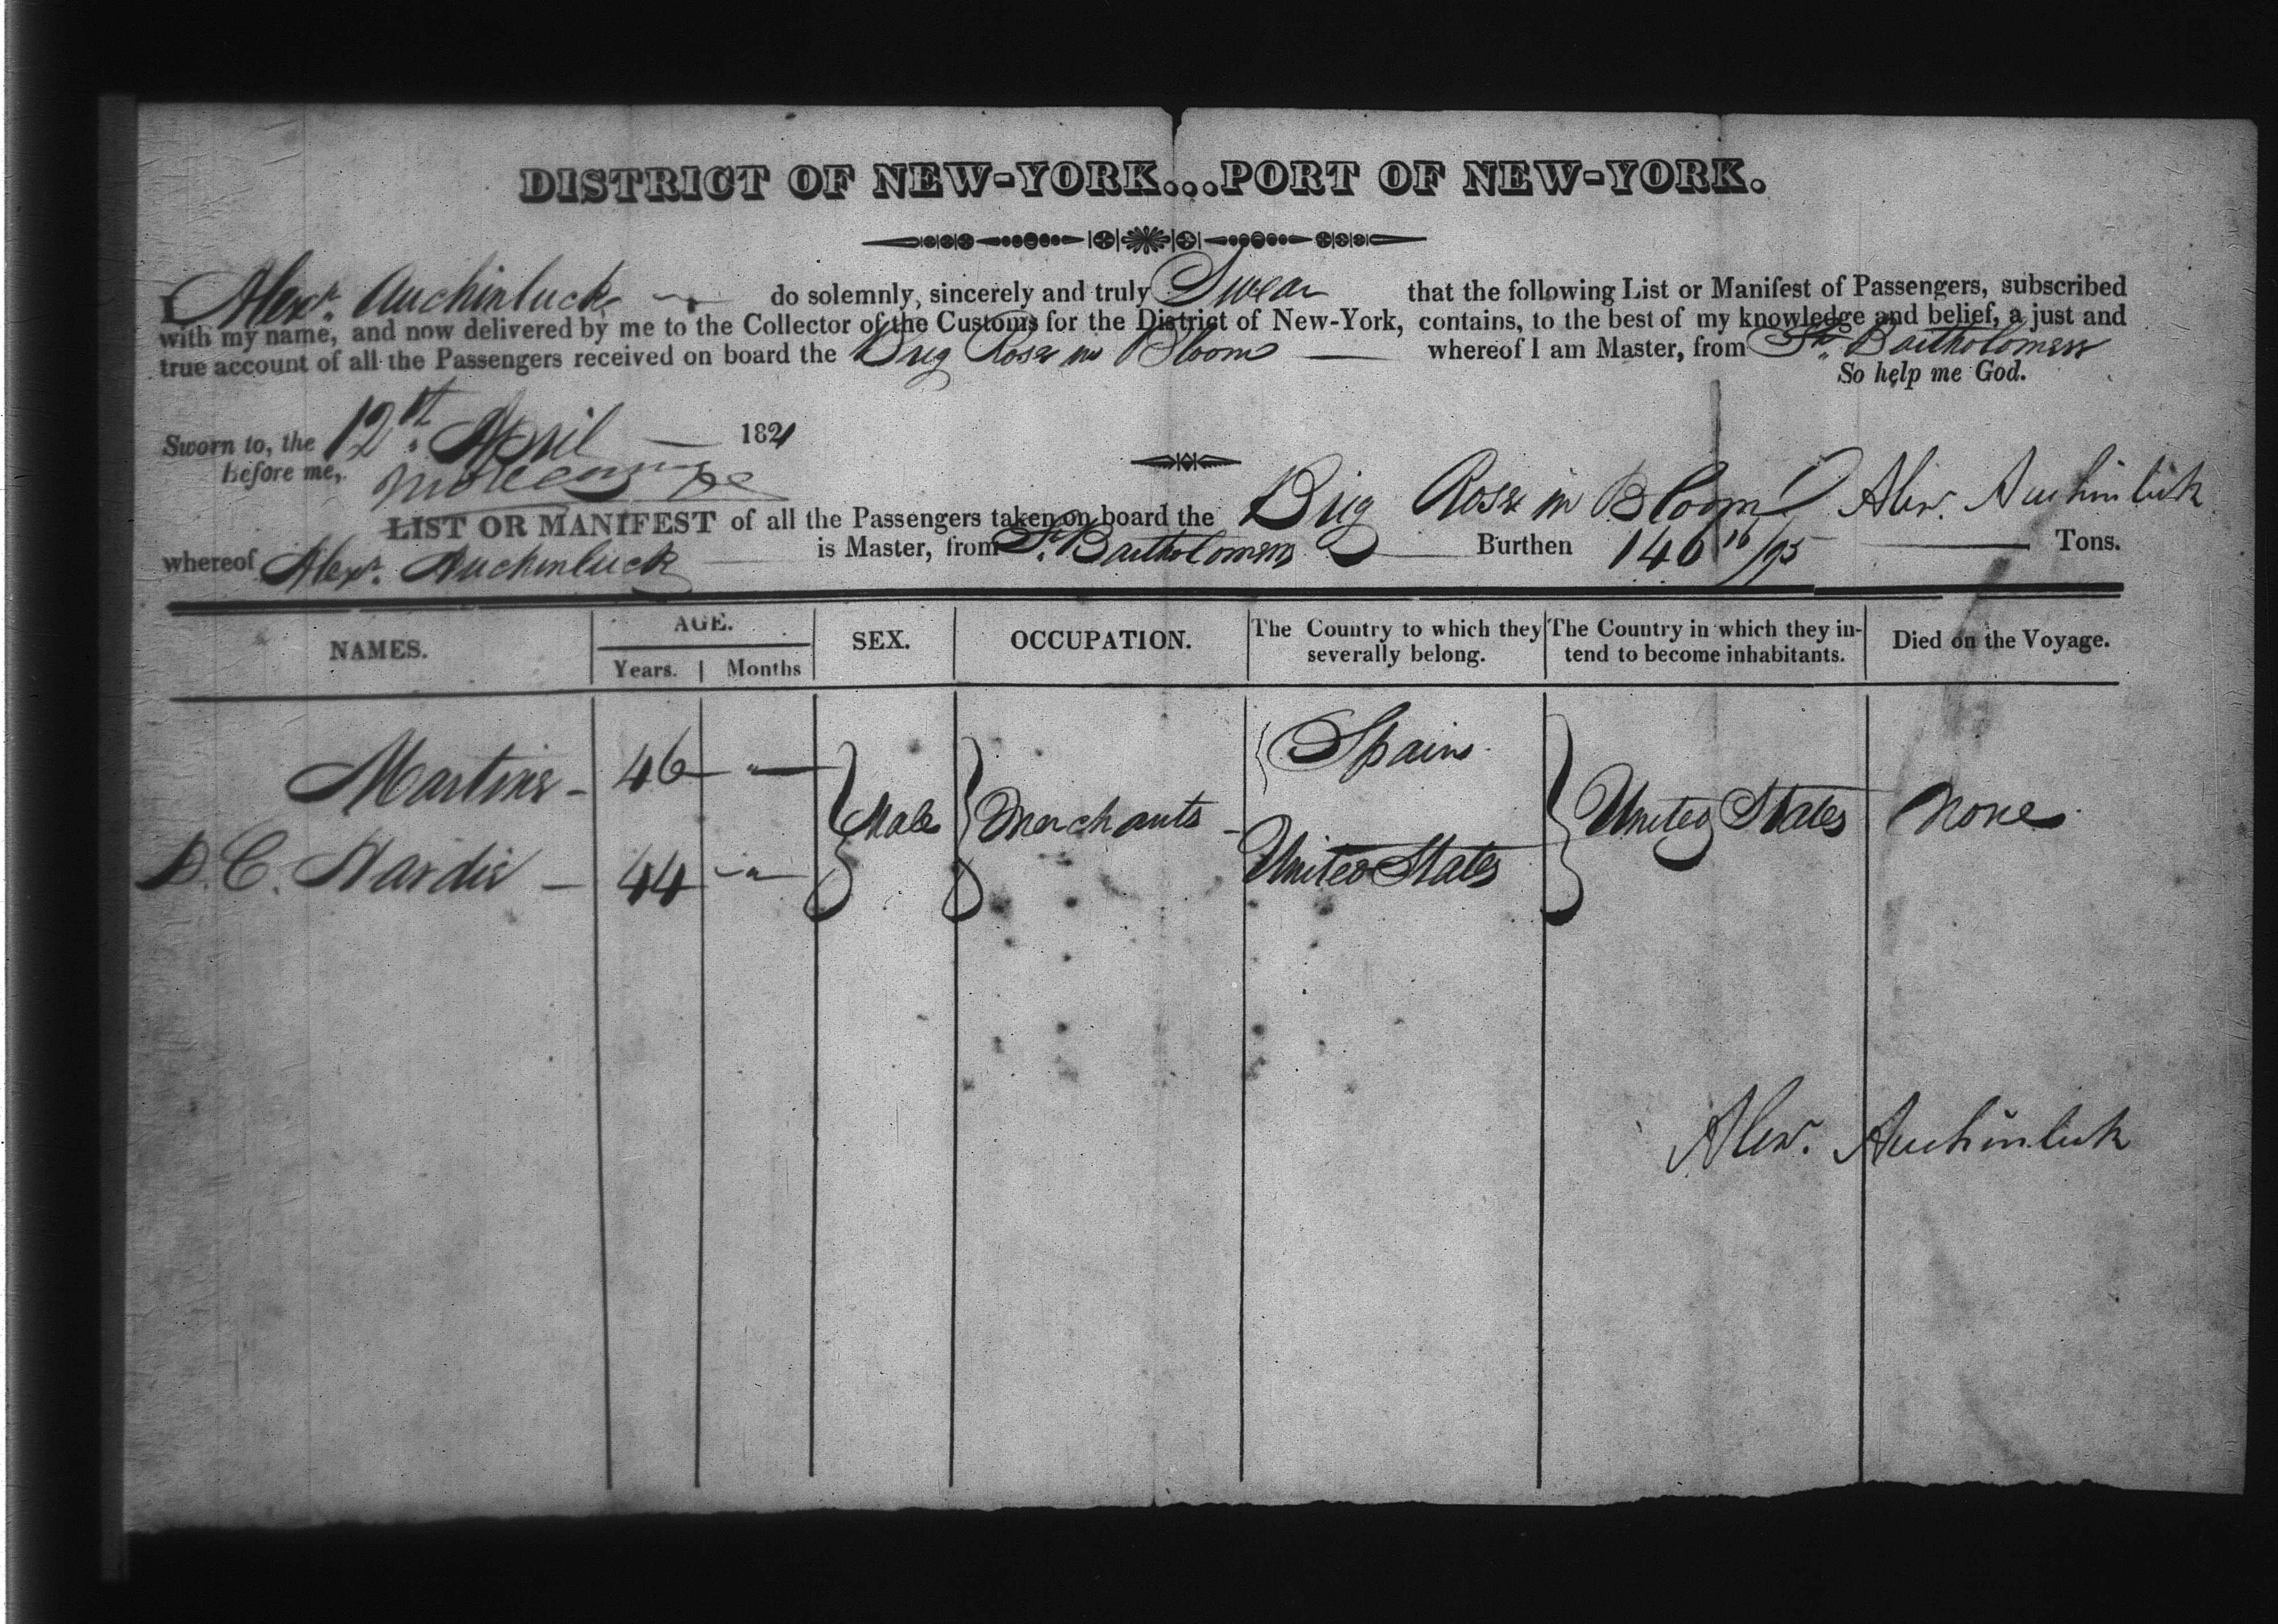 DISTRICT OF NEW-YORK...PORT OF NEW-YORK.
I Alexr. Auchinluck do solemnly, sincerely and truly Swear that the following List or Manifest of Passengers, subscribed
with my name, and now delivered by me to the Collector of the Customs for the District of New-York, contains, to the best of my knowledge and belief, a just and
true account of all the Passengers received on board the Brig Rose in Bloom whereof I am Master, from St. Bartholomew
So help me God.
Sworn to, the 12st. April 1821
Before me,
Alexr. Auchinluck
LIST OR MANIFEST of all the Passengers taken on board the Brig Rose in Bloom
whereof Alexr. Auchinluck is Master, from St. Bartholomews Burthen 146 16/95 Tons.
NAMES. AGE. SEX. OCCUPATION. The Country to which they severally belong. The Country in which they intend to become inhabitants. Died on the Voyage.
Years. Months
Martins - 46 - " - Male Merchants - Spain United States None
D. C. Hardie - 44 - " - United States
Alexr. Auchinluck